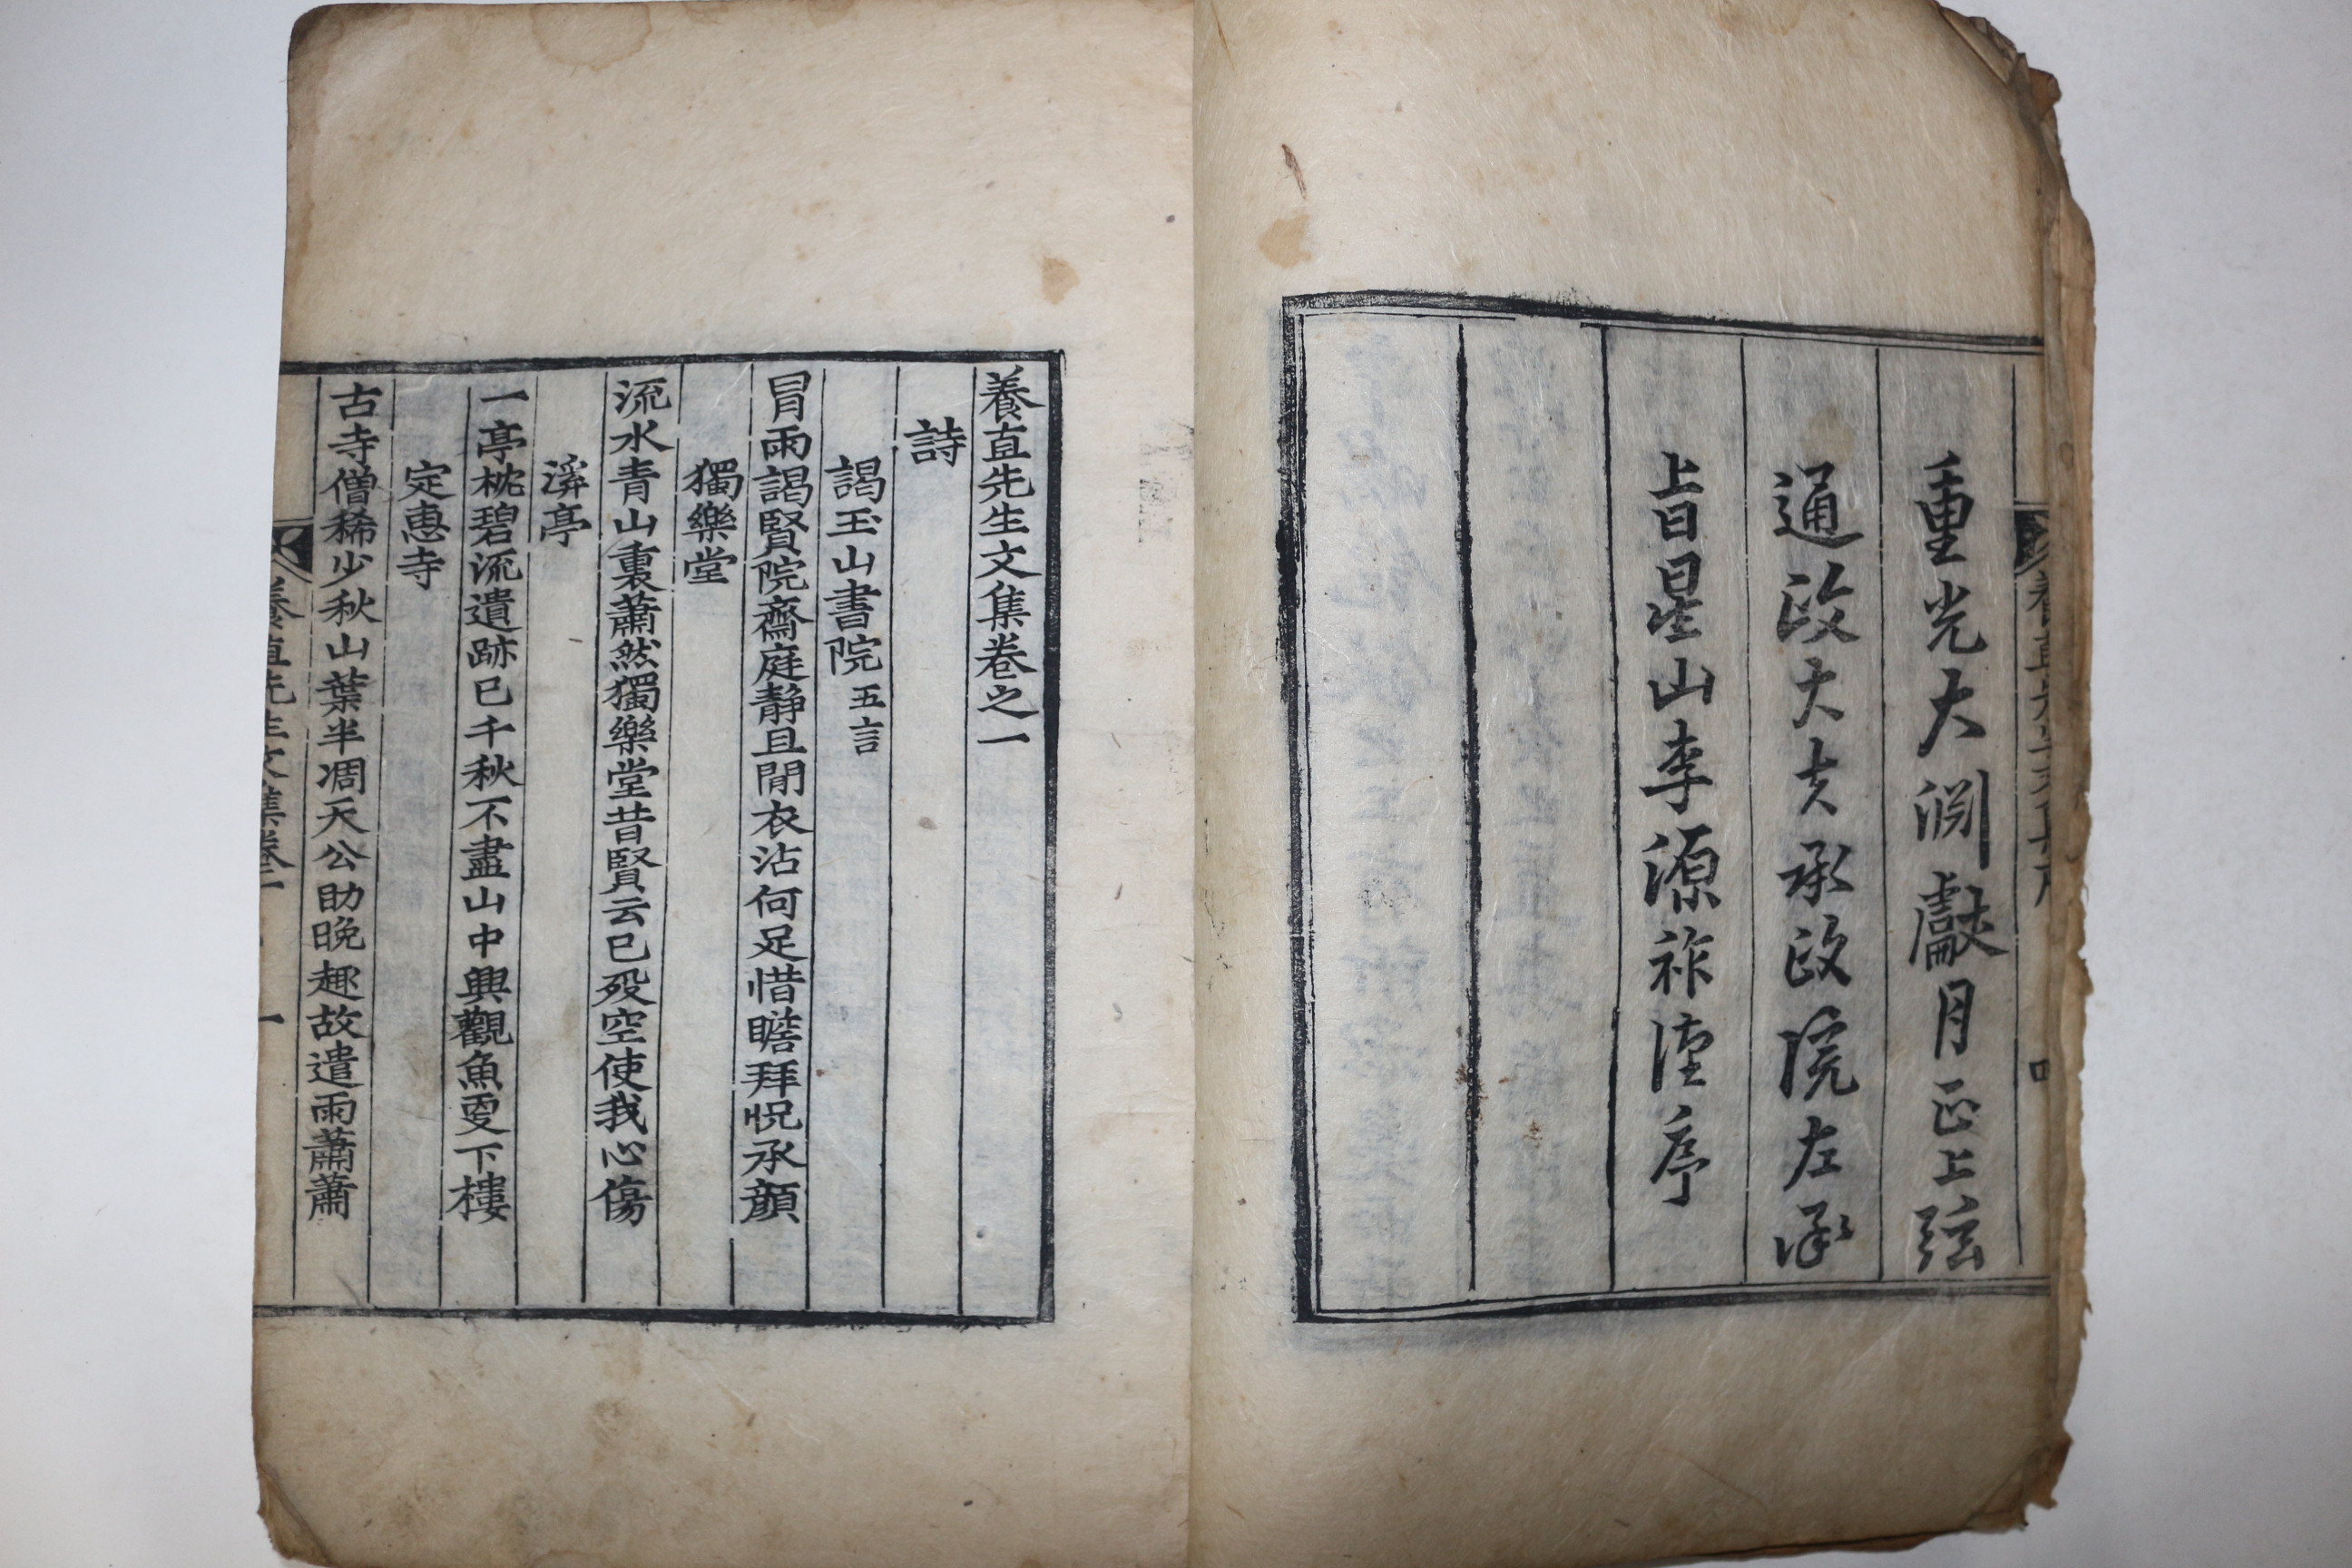 重光大淵獻月正上弦
通政大夫承政院左承
旨星山李源祚謹序
養直先生文集卷之一
詩
謁玉山書院 五言
冒雨謁賢院齋庭靜且閒衣沾何足惜瞻拜怳承顔
獨樂堂
流水青山裏蕭然獨樂堂昔賢云已歿空使我心傷
溪亭
一亭枕碧流遺跡已千秋不盡山中興觀魚更下樓
定惠寺
古寺僧稀少秋山葉半凋天公助晚趣故遣雨蕭蕭
養直先生文集卷一 一